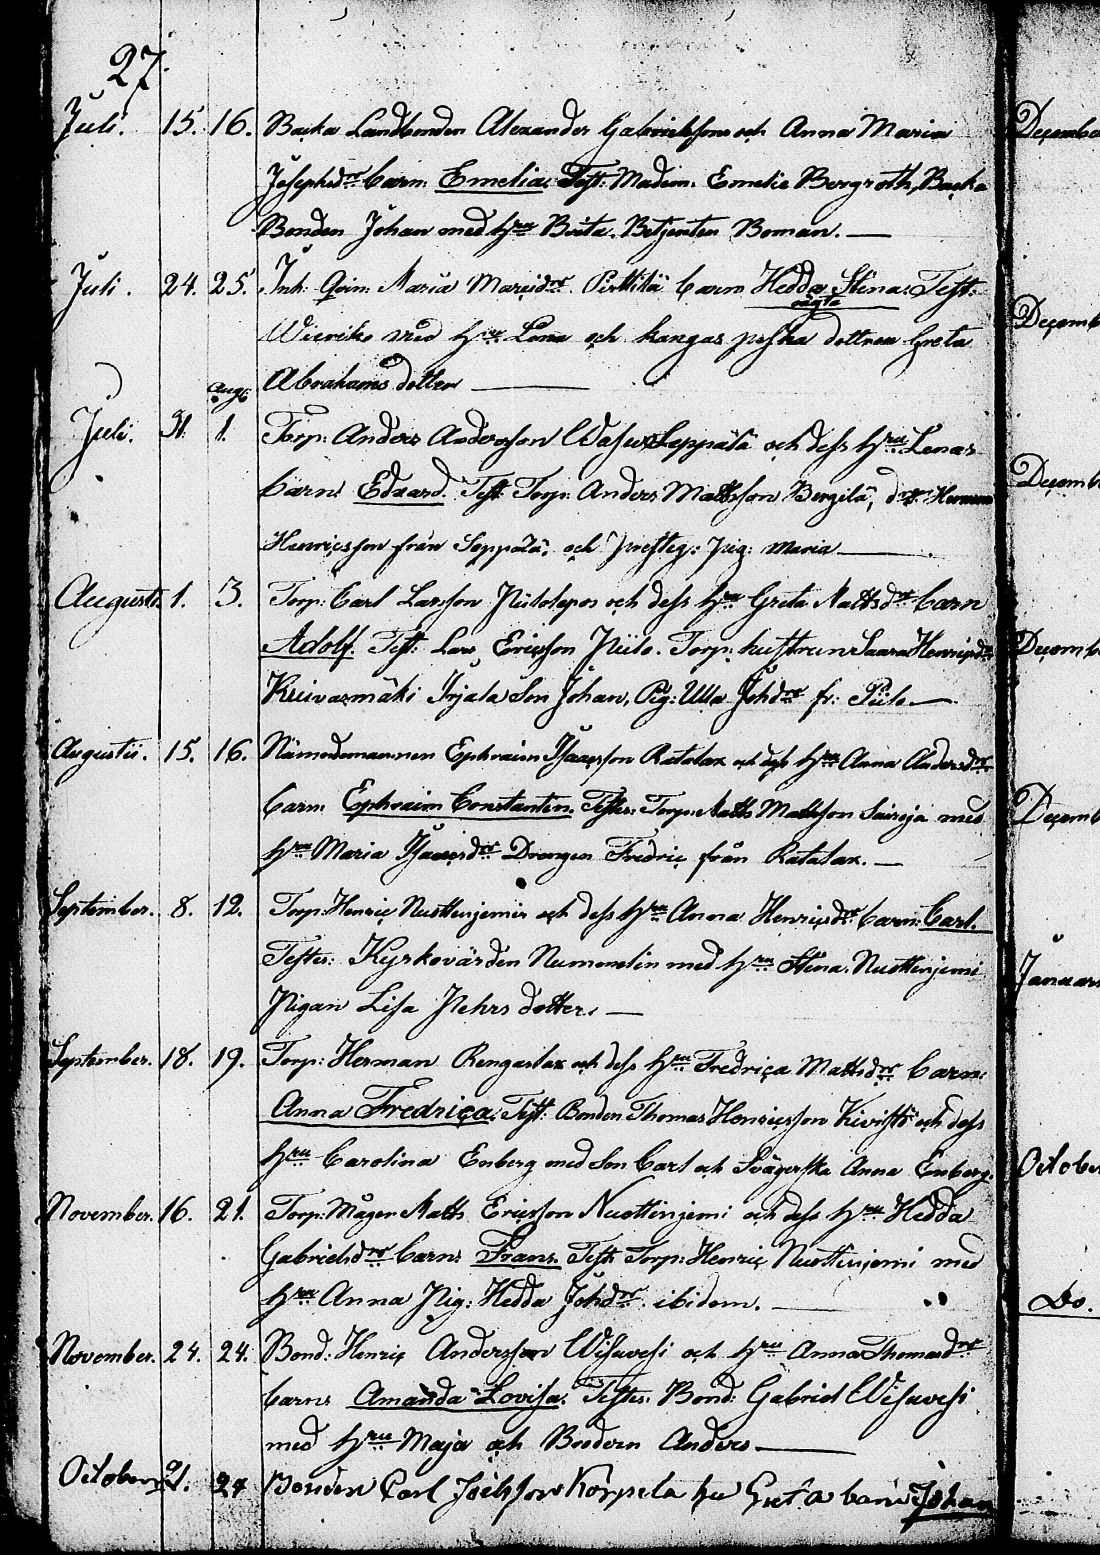 27.
Juli. 15. 16. Backa Landbonden Alexander Gabrielsson och Anna Maria
Josephsdr barn Emelia. Test: Madem. Emelie Bergroth, Backa
Bonden Johan med hru Brita. Betjenten Boman. —
Juli. 24. 25. Inh: Qvin: Maria Mariædr Pirttilä barn Hedda Stina. Test:
oägta
med hru Lena och kangas dottren Greta
Abrahams dotter —
Aug:
Juli. 31. 1. Torp: Anders Andersson Leppälä och dess hru Lenas
barn Edvard. Test: Torp: Anders Mattsson Bergilä, Herman
Henricsson från och Prestg: Pig: Maria —
Augusti. 1. 3. Torp: Carl Larsson och dess hru Greta Mattsdr barn
Adolf. Test: Lars Ericsson Piilo. Torp: hustrun Saara Henricsdr
Kuivasmäki Irjala Son Johan, Pig: Ulla Johdr fr: Piilo —
Augustii. 15. 16. Nämndemannen Ephraim Isaacsson Ratalax och dess hru Anna Andersdr
barn Ephraim Constantin. Testes: Torp: Matts Mattsson med
hru Maria Isaacsdr Drengen Fredric från Ratalax. —
September. 8. 12. Torp: Henric Nuottenjemi och dess hru Anna Henricsdr barn: Carl.
Testes: Kyrkovärden Numendin med hru Stina. Nuottinjemi
Pigan Lisa Pehrs dotter. —
September. 18. 19. Torp: Herman Rengaslax och dess hru Fredrica Mattsdr barn:
Anna Fredrica. Test: Bonden Thomas Henricsson Kivistö och dess
hru Carolina Enberg med Son Carl och Svägerska Anna Enberg.
November. 16. 21. Torp: Mågen Matts Ericsson Nuottinjemi och dess hru Hedda
Gabrielsdr barn Frans. Test: Torp: Henric Nuottinjemi med
hru Anna Pig: Hedda Johdr ibidem. —
November. 24. 24. Bond: Henric Andersson Wesuvesi och hru Anna Thomasdr
barn Amanda Lovisa. Testes: Bond: Gabriel Wesuvesi
med hru Maja och Brodern Anders —
October 21. 24 Bonden Carl Korpela hu Greta barn Johan
Decembe
Decemb
Decemb
Decemb
Decemb
Januari
October
Do.